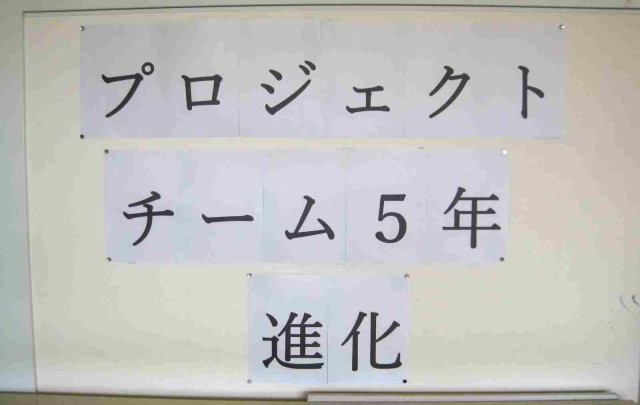 プロジェクト
チーム5年
進化